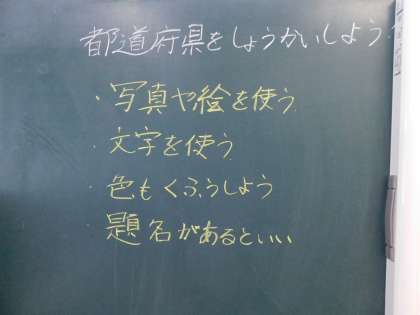 都道府県をしょうかいしよう
・写真や絵を使う
・文字を使う
・色もくふうしよう
・題名があるといい